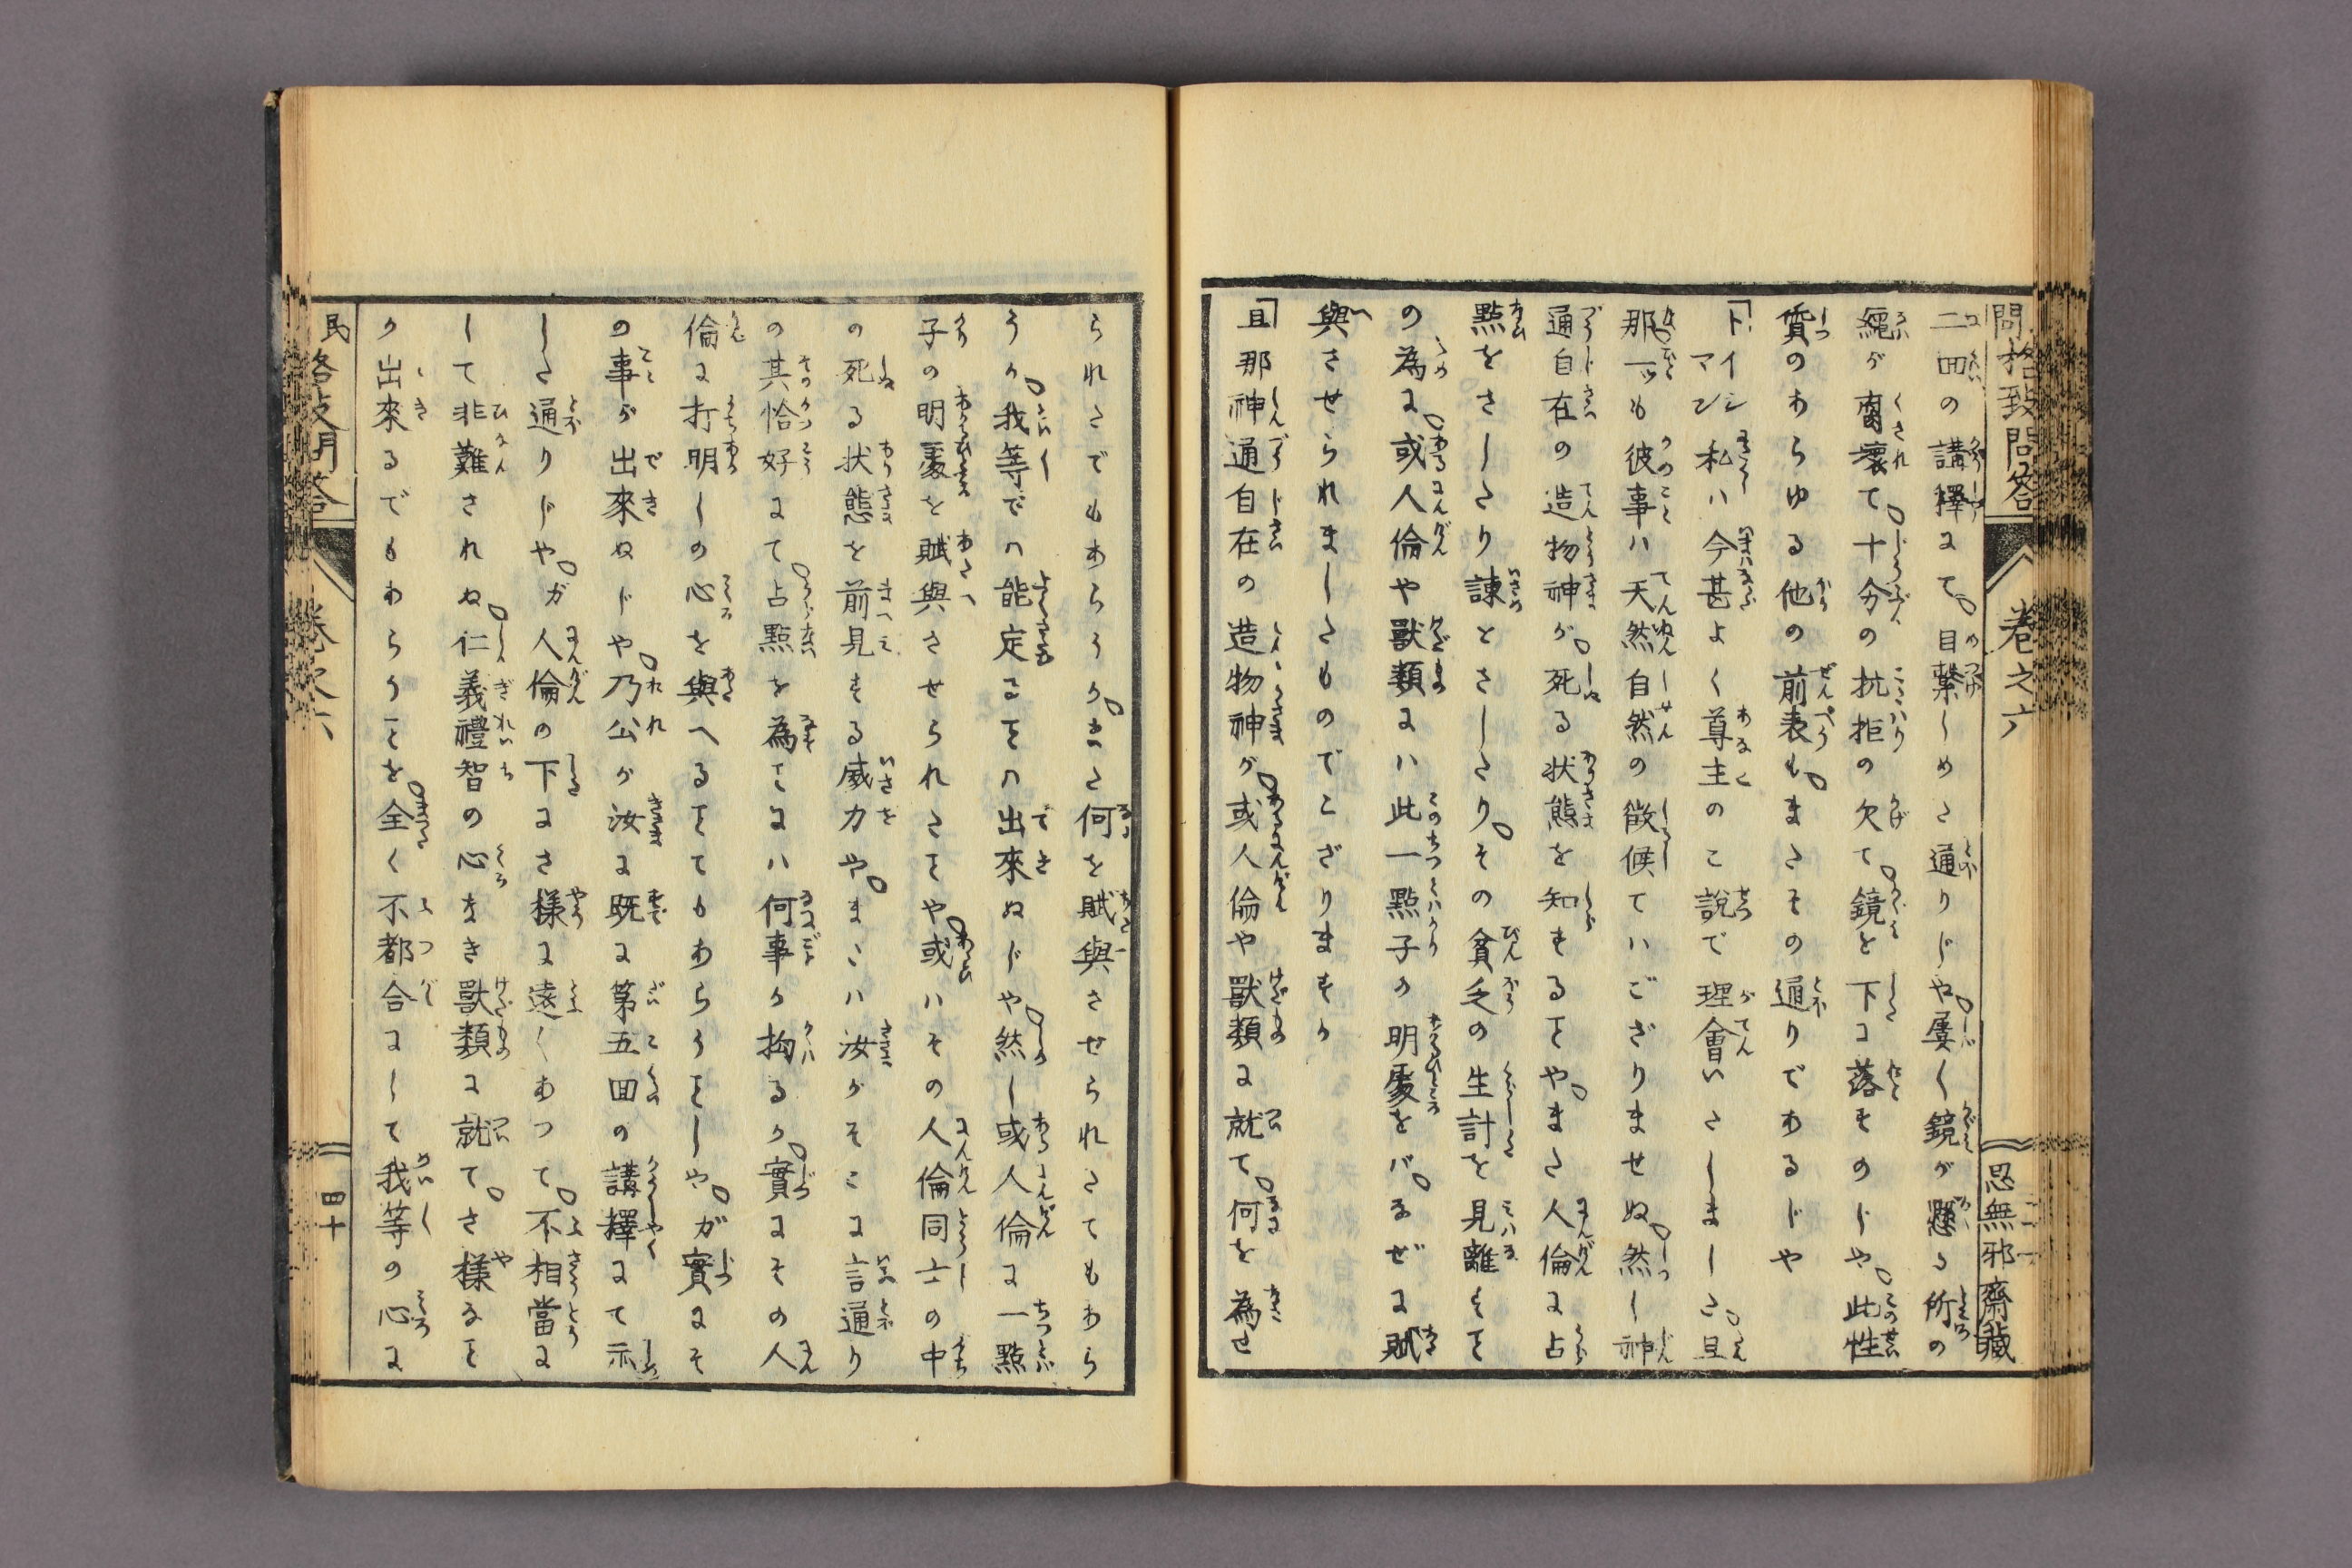 問格致問答
巻之六
思無邪齋藏
二回の講釋にて目擊しめた通りじや屡く鏡が懸る所の
繩が腐壞て十分の抗拒の欠て鏡を下に落すのじや此性
質のあらゆる他の前表もまたその通りであるじや
「トイシマヒ私ハ今甚よく尊主のこ説で理會いたしました且
那一ッも彼事ハ天然自然の徴候でハござりませぬ然し神
通自在の造物神が死る状態を知するとやまた人倫に占
點をさしたり諌とさしたりその貧乏の生計を見離すと
の為に或人倫や獸類にハ此一點子の明處をバなぜに賦
與させられましたものでござりますか
「且那神通自在の造物神が或人倫や獸類に就て何を為せ
られたでもあらうかまた何を賦與させられたでもあら
うか我等でハ能定ることハ出來ぬじや然し或人倫に一點
子の明處を賦與させられたとや或ハその人倫同士の中
の死る状態を前見する威力やまたハ汝がそこに言通り
の其恰好にて占點を為ことにハ何事か拘るか實にその人
倫に打明しの心を與へるとてもあらうとしやガ實にそ
の事が出來ぬじや乃公が汝に既に第五回の講釋にて示
した通りじやガ人倫の下にさ様に遠くあつて不相當に
して非難されぬ仁義禮智の心なき獸類に就てさ様なと
か出來るでもあらうことを全く不都合にして我等の心に
格致問答
巻之六
四十